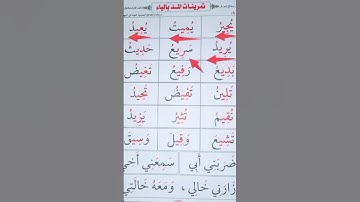 تمرينات المد بالياء
يُجِيرُ يُمِيتُ يُعِيدُ
يُرِيدُ سَرِيعُ حَدِيثُ
بَدِيعُ رَفِيعُ تَغِيضُ
تَلِينُ تَفِيضُ تَحِيدُ
نُقِيمُ تُثِيرُ يَزِيدُ
تَشِيعُ وَقِيلَ وَسِيقَ
ضَرَبَنِي أَبِي سَمِعَنِي أَخِي
زَارَنِي خَالِي ، وَمَعَهُ خَالَتِي